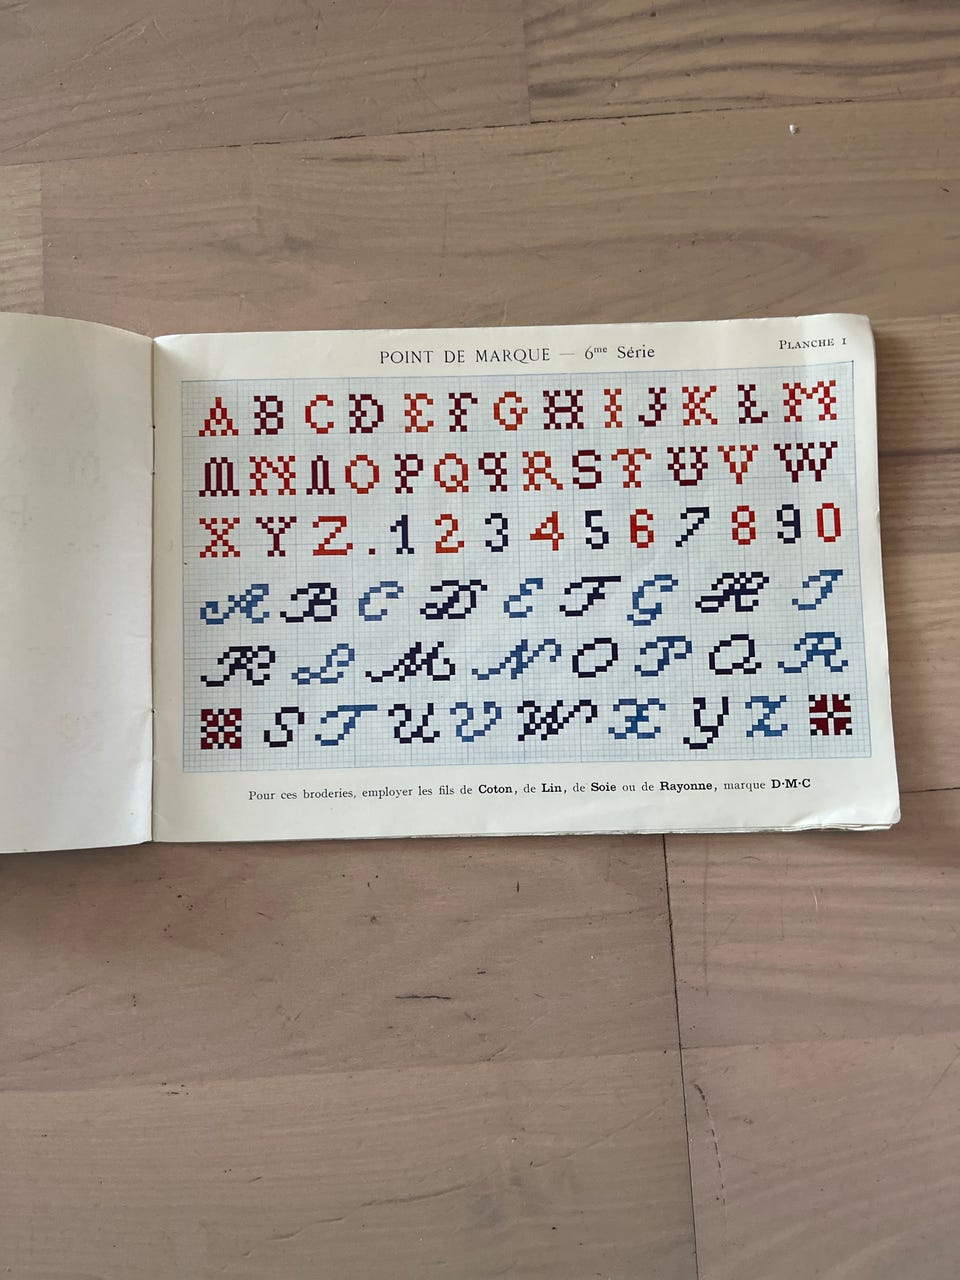 POINT DE MARQUE — 6me Série
PLANCHE I
A B C D E F G H I J K L M
M N N O P Q Q R S T U V W
X Y Z . 1 2 3 4 5 6 7 8 9 0
A B C D E F G H I
K L M N O P Q R
S T U V W X Y Z
Pour ces broderies, employer les fils de Coton, de Lin, de Soie ou de Rayonne, marque D·M·C